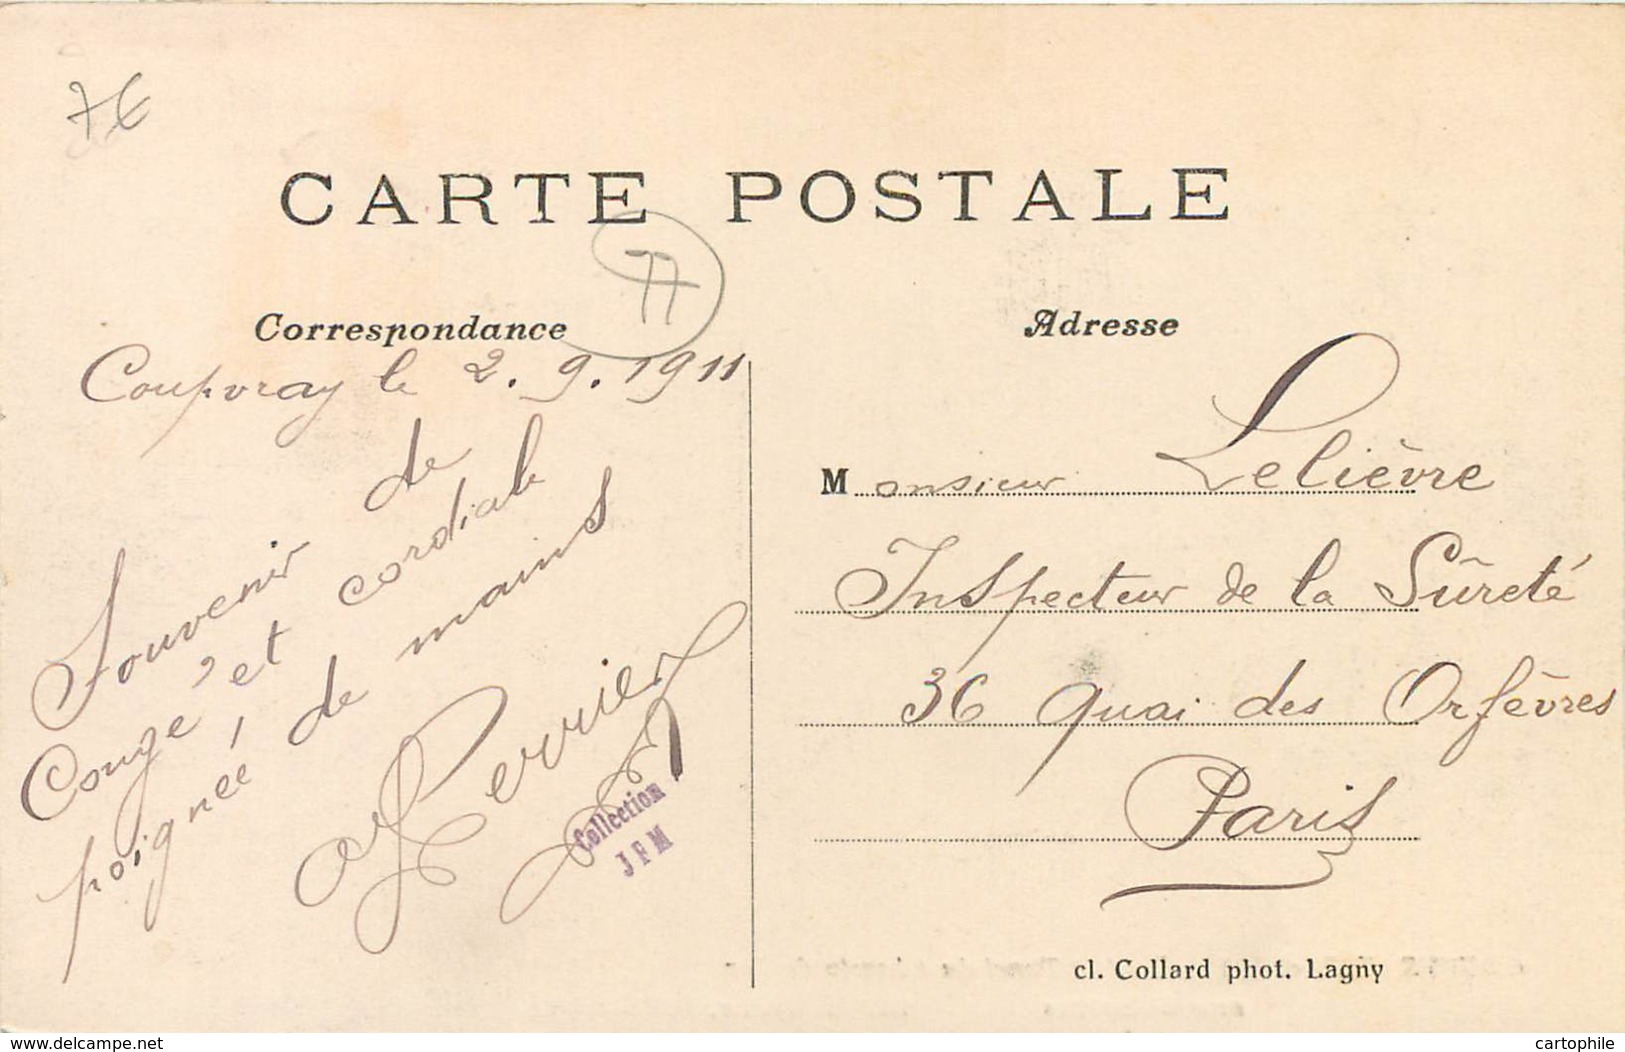 7€
CARTE POSTALE
77
Correspondance
Coupvray le 2.9.1911
Souvenir de
Congé, et cordiale
poigneé de mains
Perrier
Collection
J F M
Adresse
Monsieur Lelièvre
Inspecteur de la Sûreté
36 Quai des Orfèvres
Paris
cl. Collard phot. Lagny
www.delcampe.net
cartophile